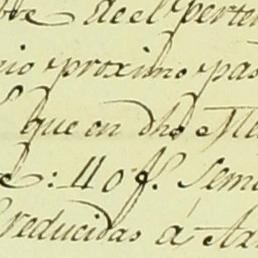 bre de el perte
nio proximo pas
que en dho Me
: 110 f. Sem
reducidas á Ar